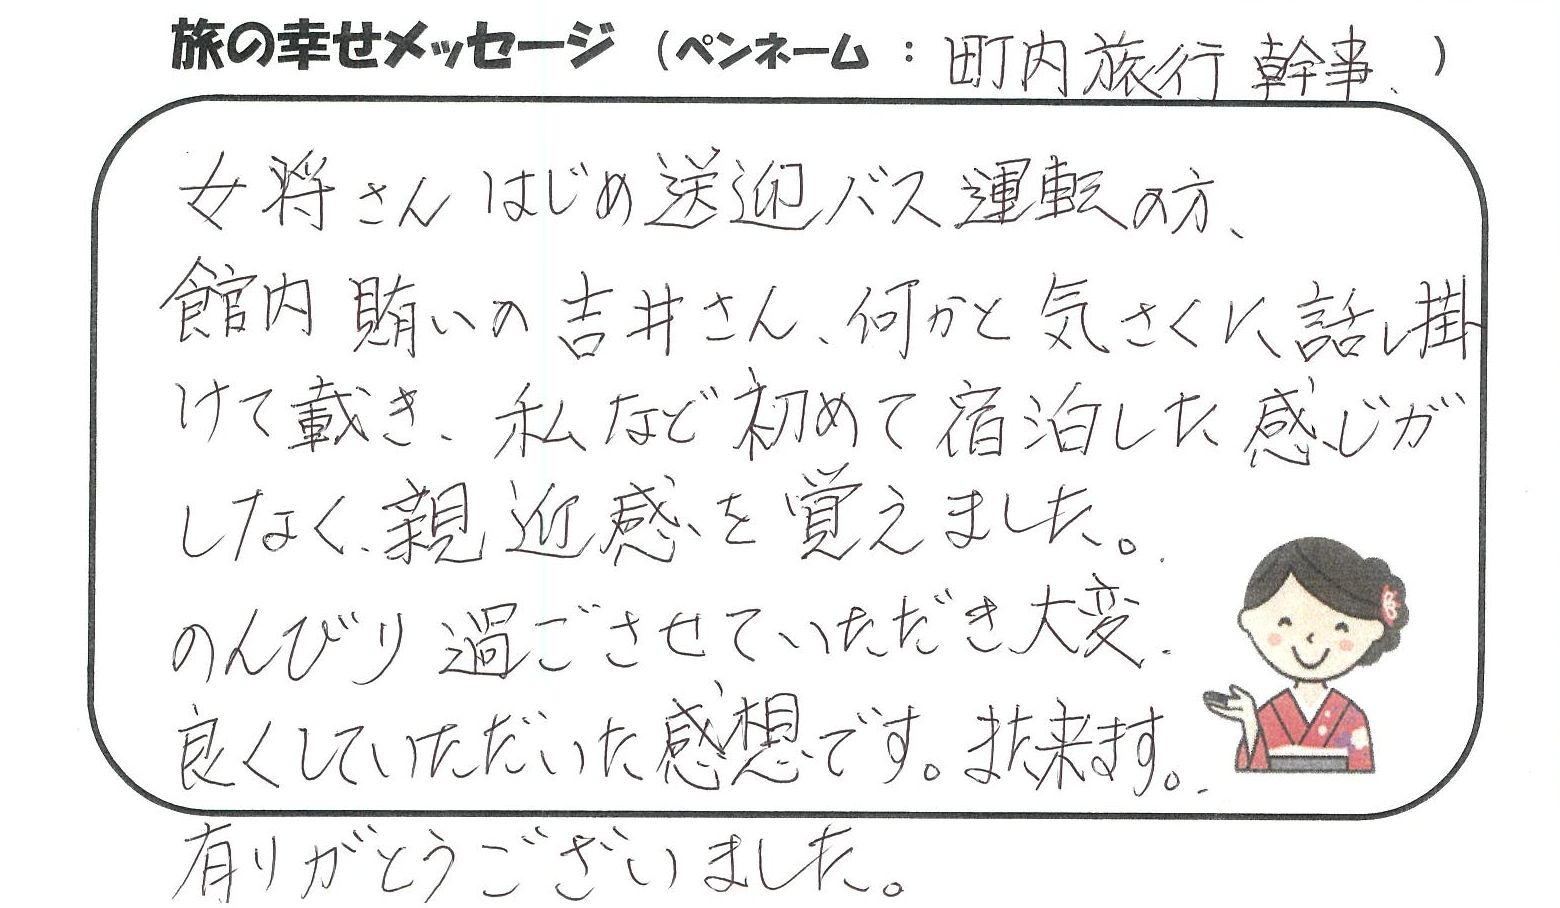 旅の幸せメッセージ（ペンネーム：町内旅行幹事）
女将さんはじめ送迎バス運転の方、
館内賄いの吉井さん、何かと気さくに、話し掛
けて載き、私など初めて宿泊した感じが
しなく、親近感を覚えました。
のんびり過ごさせていただき大変
良くしていただいた感想です。また来ます。
有りがとうございました。